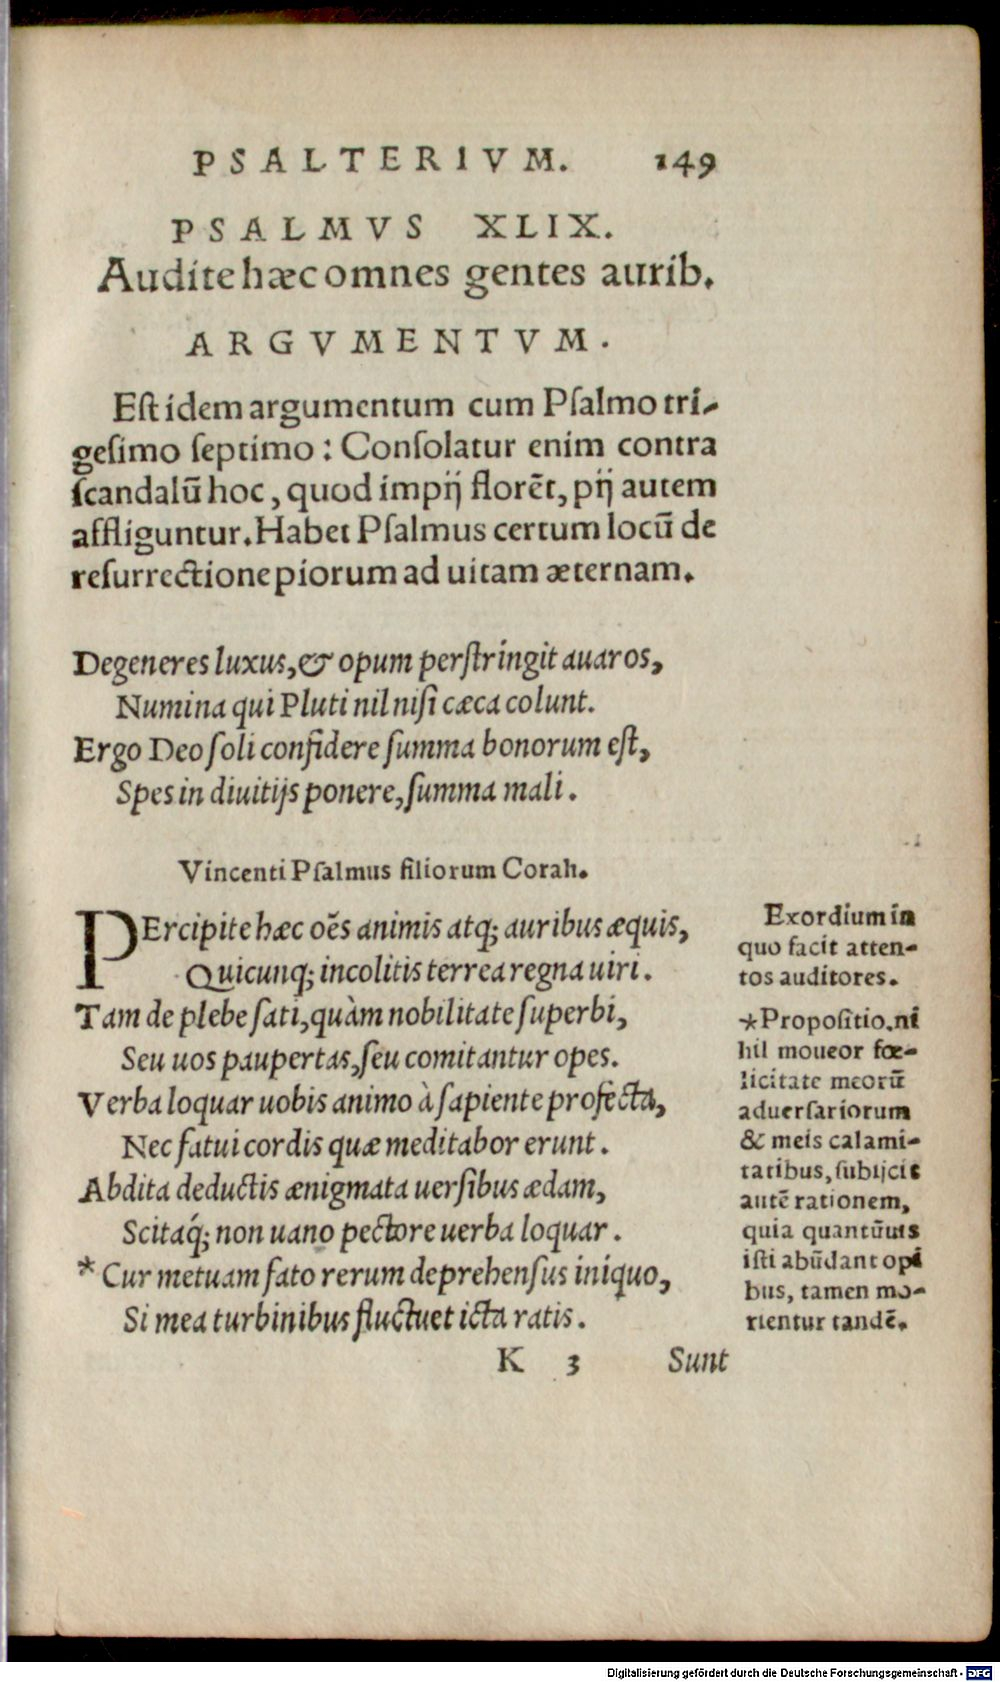 PSALTERIVM. 149
PSALMVS XLIX.
Audite hæc omnes gentes aurib.
ARGVMENTVM.
Eſt idem argumentum cum Pſalmo tri-
geſimo ſeptimo: Conſolatur enim contra
ſcandalū hoc, quod impij florēt, pij autem
affliguntur. Habet Pſalmus certum locū de
reſurrectione piorum ad uitam æternam.
Degeneres luxus, & opum perſtringit auaros,
Numina qui Pluti nil niſi cæca colunt.
Ergo Deo ſoli confidere ſumma bonorum eſt,
Spes in diuitijs ponere, ſumma mali.
Vincenti Pſalmus filiorum Corah.
PErcipite hæc oēs animis atq; auribus æquis,
Quicunq; incolitis terrea regna uiri.
Tam de plebe ſati, quàm nobilitate ſuperbi,
Seu uos paupertas, ſeu comitantur opes.
Verba loquar uobis animo à ſapiente profecta,
Nec fatui cordis quæ meditabor erunt.
Abdita deductis ænigmata uerſibus ædam,
Scitaq́; non uano pectore uerba loquar.
* Cur metuam fato rerum deprehenſus iniquo,
Si mea turbinibus fluctuet icta ratis.
Exordium in
quo facit atten-
tos auditores.
*Propoſitio. ni
hil moueor fœ-
licitate meorū
aduerſariorum
& meis calami-
tatibus, ſubijcit
autē rationem,
quia quantūuis
iſti abūdant opi
bus, tamen mo-
rientur tandē.
K 3 Sunt
Digitalisierung gefördert durch die Deutsche Forschungsgemeinschaft - DFG